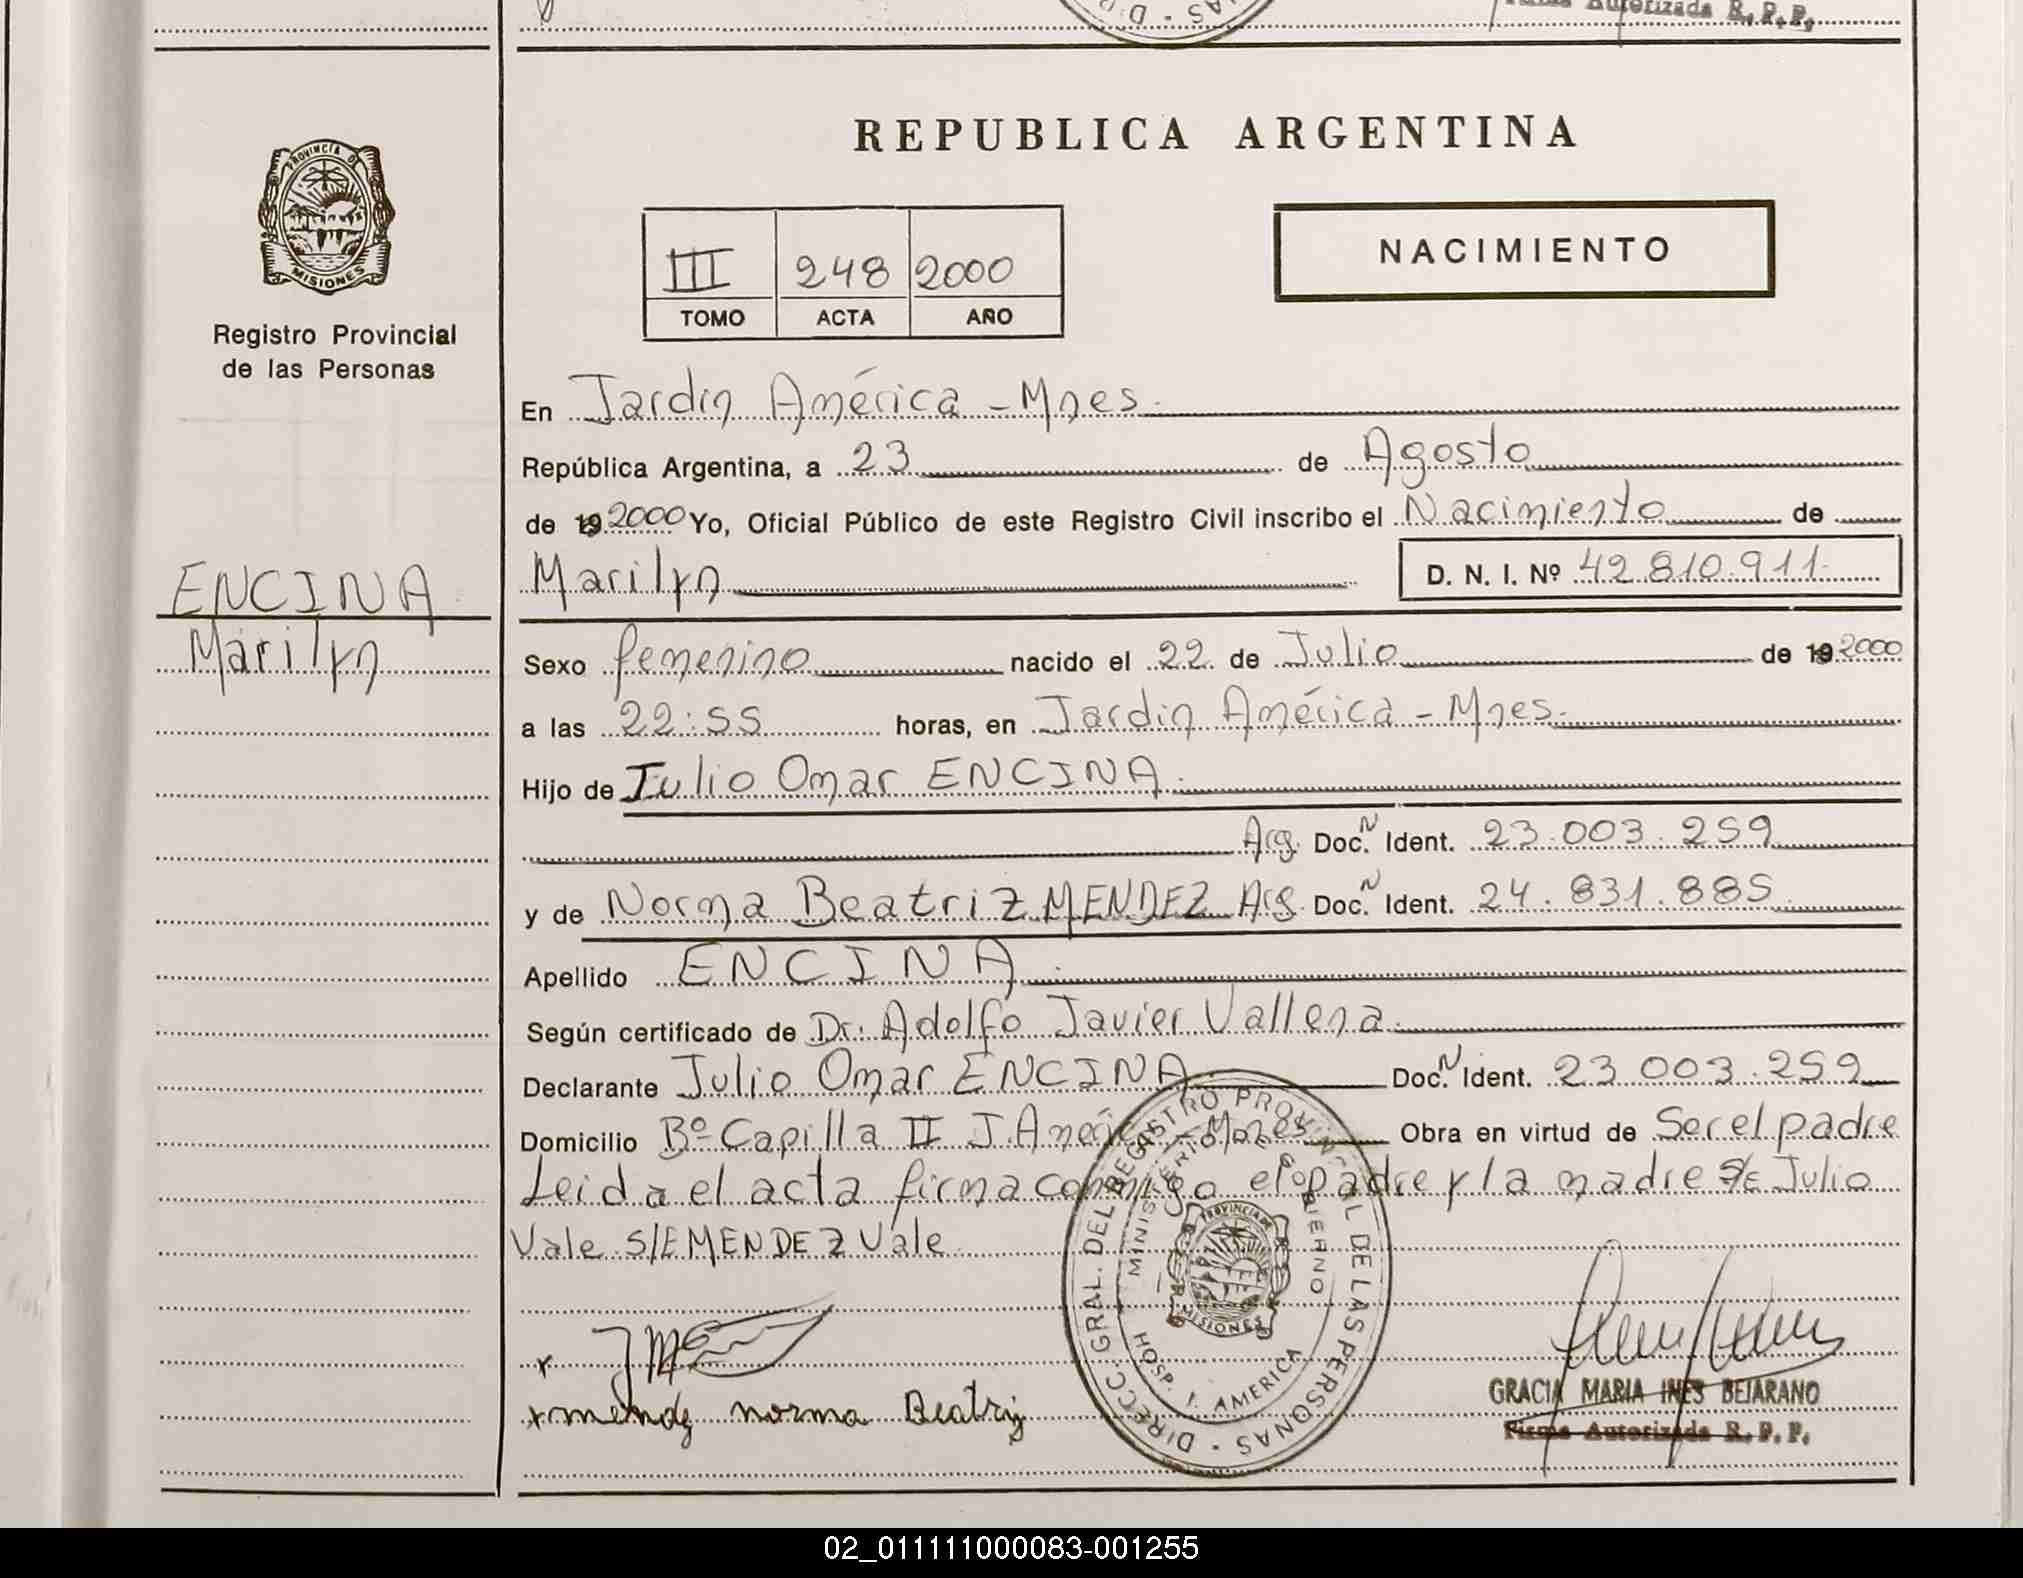 Firma Autorizada R. P. P.
REPUBLICA ARGENTINA
PROVINCIA DE
MISIONES
Registro Provincial
de las Personas
III 248 2000
TOMO ACTA AÑO
NACIMIENTO
En Jardin América - Mnes.
República Argentina, a 23 de Agosto
de 19 2000 Yo, Oficial Público de este Registro Civil inscribo el Nacimiento de
ENCINA
Marilyn
Marilyn D. N. I. Nº 42.810.911.
Sexo femenino nacido el 22 de Julio de 19 2000
a las 22:55 horas, en Jardin América - Mnes.
Hijo de Julio Omar ENCINA.
Arg. Doc. N Ident. 23.003.259
y de Norma Beatriz MENDEZ Arg. Doc. N Ident. 24.831.885
Apellido ENCINA.
Según certificado de Dr. Adolfo Javier Vallena.
Declarante Julio Omar ENCINA Doc. N Ident. 23.003.259
Domicilio Bº Capilla II J. Amér - Mnes Obra en virtud de Ser el padre
Leida el acta firma conmigo el padre y la madre S/E Julio
Vale S/E MENDEZ Vale
DIRECC. GRAL. DEL REGISTRO PROVINCIAL DE LAS PERSONAS
MINISTERIO DE GOBIERNO
HOSP. J. AMERICA
PROVINCIA DE
MISIONES
x mendz norma Beatriz
GRACIA MARIA INES BEJARANO
Firma Autorizada R. P. P.
02_011111000083-001255